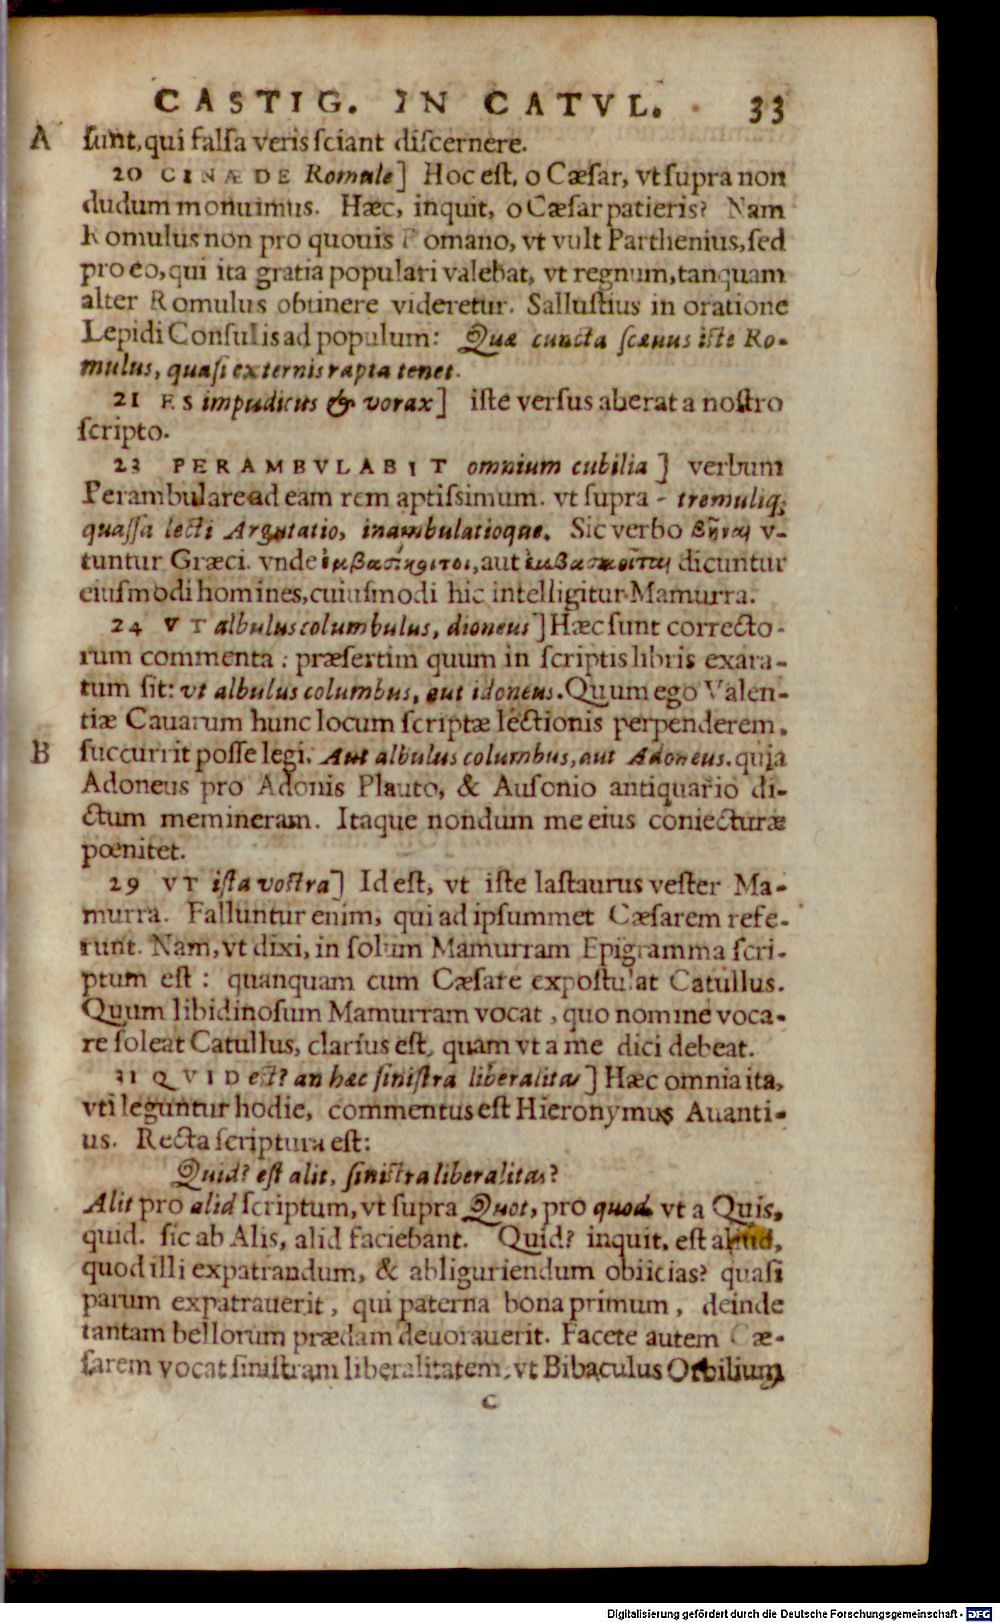 CASTIG. IN CATVL. 33
A sunt, qui falsa veris sciant discernere.
20 CINÆDE Romule] Hoc est, o Cæsar, vt supra non
dudum monuimus. Hæc, inquit, o Cæsar patieris? Nam
Romulus non pro quouis Romano, vt vult Parthenius, sed
pro eo, qui ita gratia populari valebat, vt regnum, tanquam
alter Romulus obtinere videretur. Sallustius in oratione
Lepidi Consulis ad populum: Quæ cuncta scæuus iste Ro-
mulus, quasi externis rapta tenet.
21 ES impudicus & vorax] iste versus aberat a nostro
scripto.
23 PERAMBVLABIT omnium cubilia] verbum
Perambulare ad eam rem aptissimum. vt supra - tremuliq;
quassa lecti Argutatio, inambulatioque. Sic verbo βῆναι v-
tuntur Græci. vnde ἐμβασίκοιτοι, aut ἐμβασικοῖται dicuntur
eiusmodi homines, cuiusmodi hic intelligitur Mamurra.
24 VT albulus columbulus, dioneus] Hæc sunt correcto-
rum commenta: præsertim quum in scriptis libris exara-
tum sit: vt albulus columbus, aut idoneus. Quum ego Valen-
tiæ Cauarum hunc locum scriptæ lectionis perpenderem,
B succurrit posse legi: Aut albulus columbus, aut Adoneus. quia
Adoneus pro Adonis Plauto, & Ausonio antiquario di-
ctum memineram. Itaque nondum me eius coniecturæ
pœnitet.
29 VT ista vostra] Id est, vt iste lastaurus vester Ma-
murra. Falluntur enim, qui ad ipsummet Cæsarem refe-
runt. Nam, vt dixi, in solum Mamurram Epigramma scri-
ptum est: quanquam cum Cæsare expostulat Catullus.
Quum libidinosum Mamurram vocat, quo nomine voca-
re soleat Catullus, clarius est, quam vt a me dici debeat.
31 QVID est? an hæc sinistra liberalitas] Hæc omnia ita,
vti leguntur hodie, commentus est Hieronymus Auanti-
us. Recta scriptura est:
Quid? est alit, sinistra liberalitas?
Alit pro alid scriptum, vt supra Quot, pro quod. vt a Quis,
quid. sic ab Alis, alid faciebant. Quid? inquit, est aliud,
quod illi expatrandum, & abliguriendum obiicias? quasi
parum expatrauerit, qui paterna bona primum, deinde
tantam bellorum prædam deuorauerit. Facete autem Cæ-
sarem vocat sinistram liberalitatem, vt Bibaculus Orbilium
C
Digitalisierung gefördert durch die Deutsche Forschungsgemeinschaft - DFG